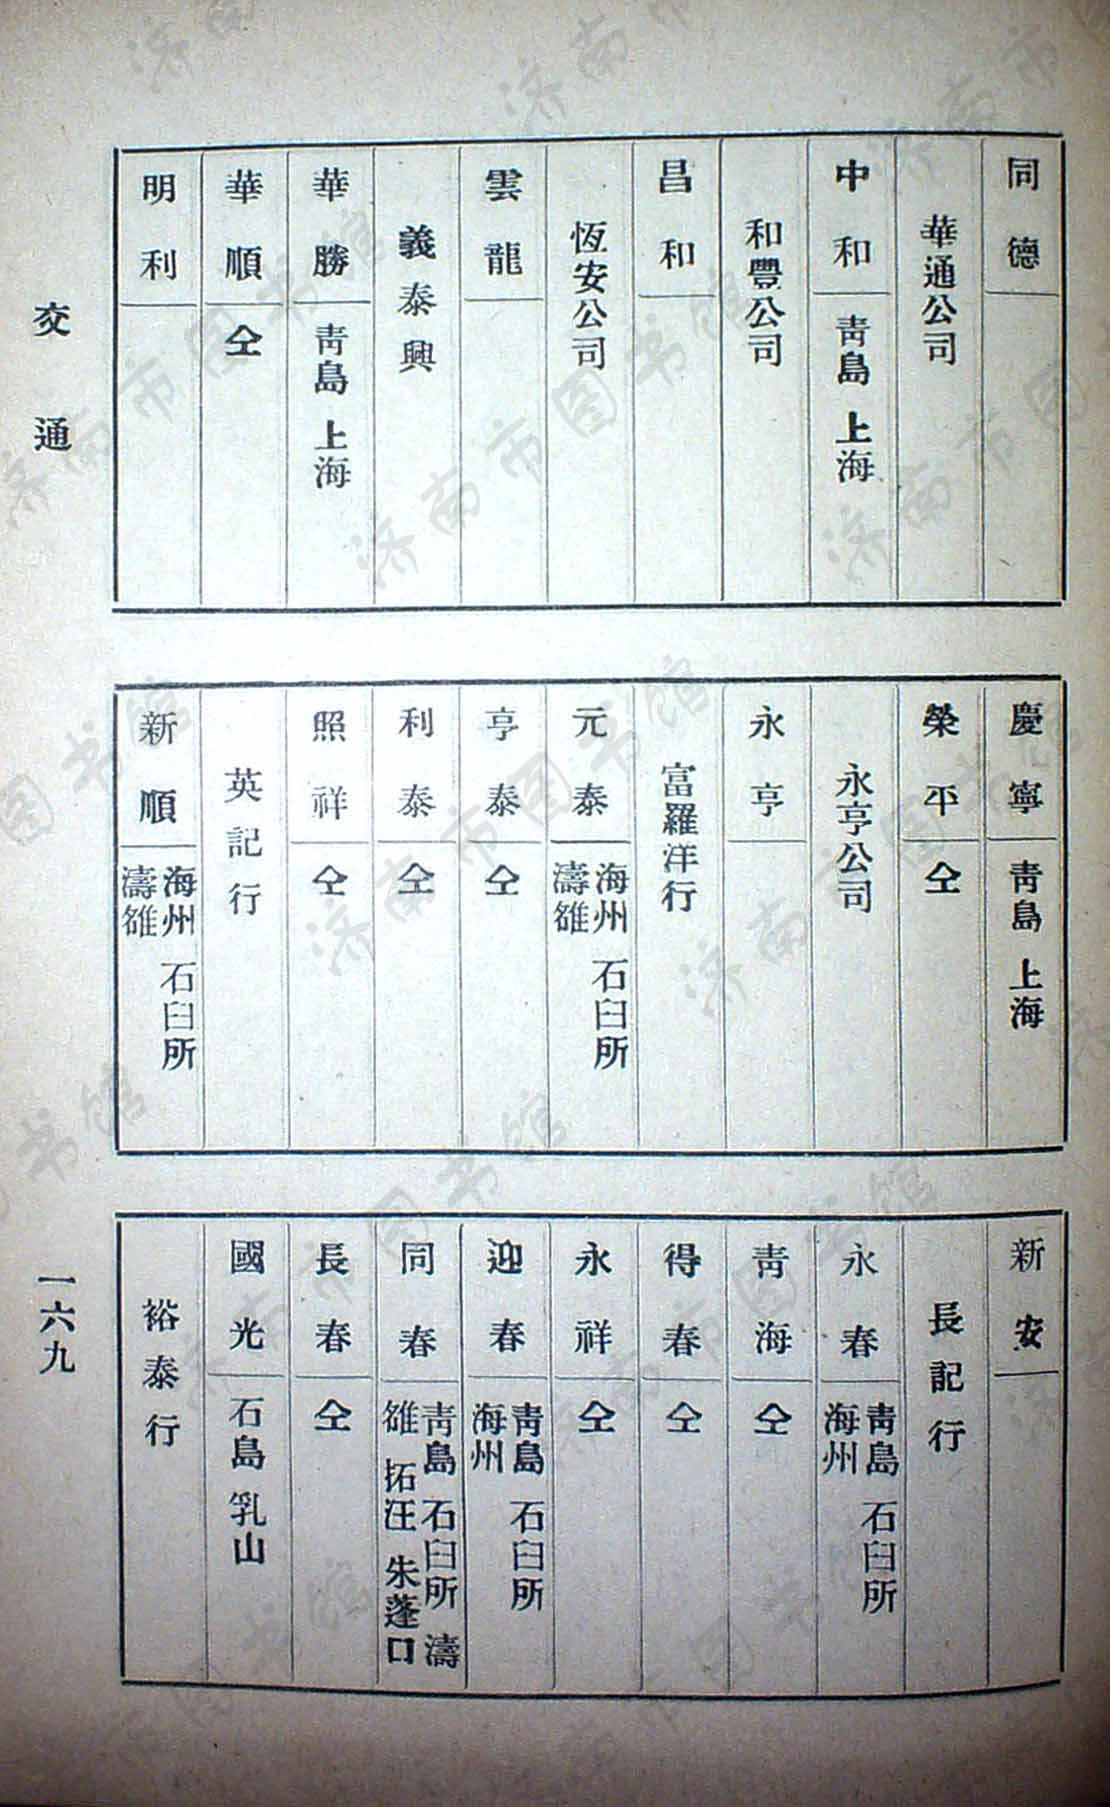 同德
華通公司
中和 靑島 上海
和豐公司
昌和
恆安公司
雲龍
義泰興
華勝 靑島 上海
華順 仝
明利
慶寧 靑島 上海
榮平 仝
永亨公司
永亨
富羅洋行
元泰 海州 石臼所
濤雒
亨泰 仝
利泰 仝
照祥 仝
英記行
新順 海州 石臼所
濤雒
新安
長記行
永春 靑島 石臼所
海州
靑海 仝
得春 仝
永祥 仝
迎春 靑島 石臼所
海州
同春 靑島 石臼所 濤
雒 拓汪 朱蓬口
長春 仝
國光 石島 乳山
裕泰行
交通
一六九
济南市图书馆